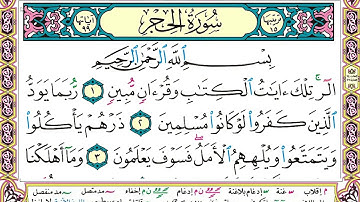 سُورَةُ الْحِجْرِ
بِسْمِ اللَّهِ الرَّحْمَٰنِ الرَّحِيمِ
الٓر تِلْكَ ءَايَٰتُ الْكِتَٰبِ وَقُرْءَانٍ مُّبِينٍ ١ رُّبَمَا يَوَدُّ
الَّذِينَ كَفَرُوا لَوْ كَانُوا مُسْلِمِينَ ٢ ذَرْهُمْ يَأْكُلُوا
وَيَتَمَتَّعُوا وَيُلْهِهِمُ الْأَمَلُ فَسَوْفَ يَعْلَمُونَ ٣ وَمَا أَهْلَكْنَا